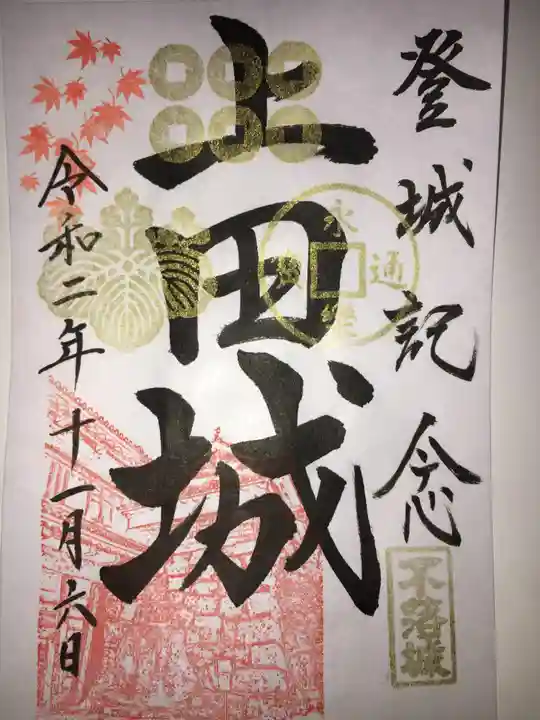 登城記念
上田城
令和二年十一月六日
永楽通寳
不落城